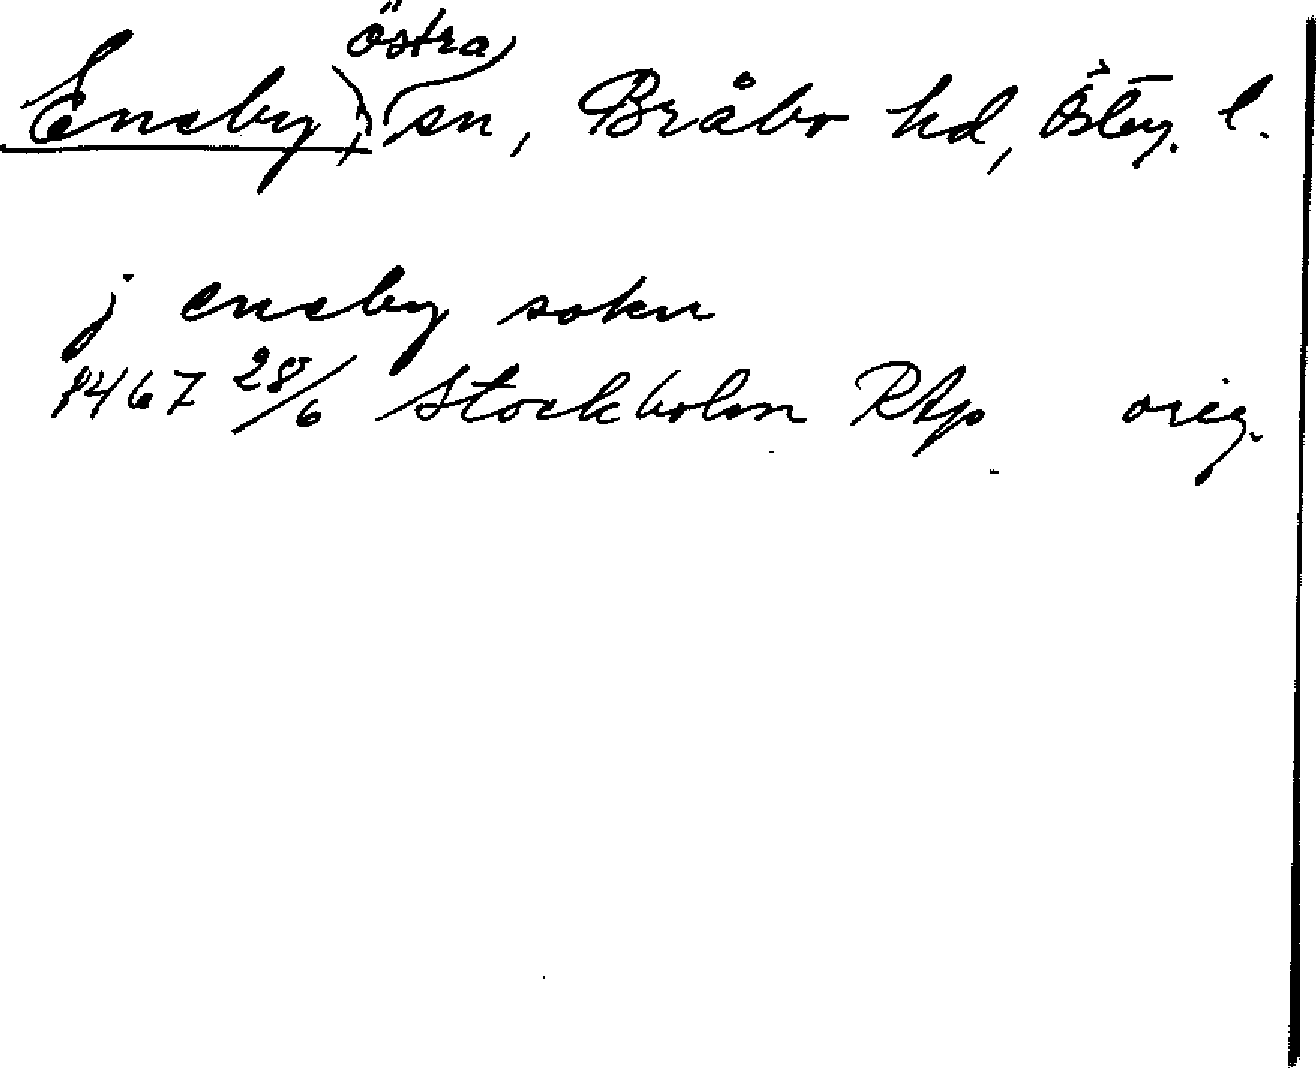 Eneby, östra sn, Bråbo hd, Östg. l.
j eneby sokn
1467 28/6 Stockholm RAp orig.